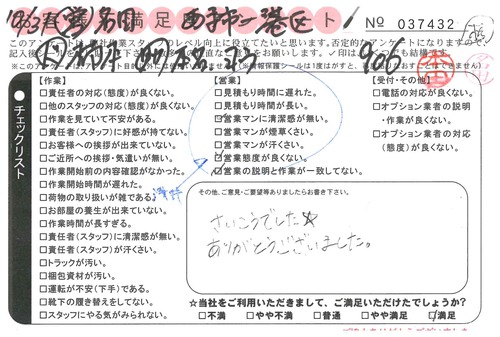 満足
ト
№ 037432
西子市→港区
966
このアンケートは
作業スタッフのレベル向上に役立てたいと思います。否定的なアンケートになりますので、
✓印は
【作業】
□責任者の対応(態度)が良くない。
□他のスタッフの対応(態度)が良くない。
□作業を見ていて不安がある。
□責任者(スタッフ)に好感が持てない。
□お客様への挨拶が出来ていない。
□ご近所への挨拶・気遣いが無い。
□作業開始前の内容確認がなかった。
□作業開始時間が遅れた。
□荷物の取り扱いが雑である。
□お部屋の養生が出来ていない。
□作業時間が長すぎる。
□責任者(スタッフ)に清潔感が無い。
□責任者(スタッフ)が汗くさい。
□トラックが汚い。
□梱包資材が汚い。
□運転が不安(下手)である。
□靴下の履き替えをしてない。
□スタッフにやる気がみられない。
チェックリスト
【営業】
□見積もり時間に遅れた。
□見積もり時間が長い。
□営業マンに清潔感が無い。
□営業マンが煙草くさい。
□営業マンが汗くさい。
□営業態度が良くない。
□営業の説明と作業が一致してない。
【受付・その他】
□電話の対応が良くない。
□オプション業者の説明
・作業が良くない。
□オプション業者の対応
(態度)が良くない。
その他、ご意見・ご要望等ありましたらお書き下さい。
さいこうでした☆
ありがとうございました。
☆当社をご利用いただきまして、ご満足いただけたでしょうか?
□不満 □やや不満 □普通 □やや満足 ☑満足